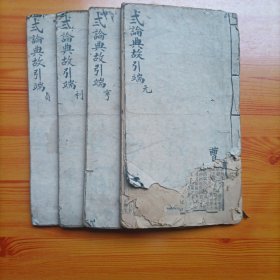 式論典故引端 元
曹
式論典故引端 亨
式論典故引端 利
式論典故引端 貞